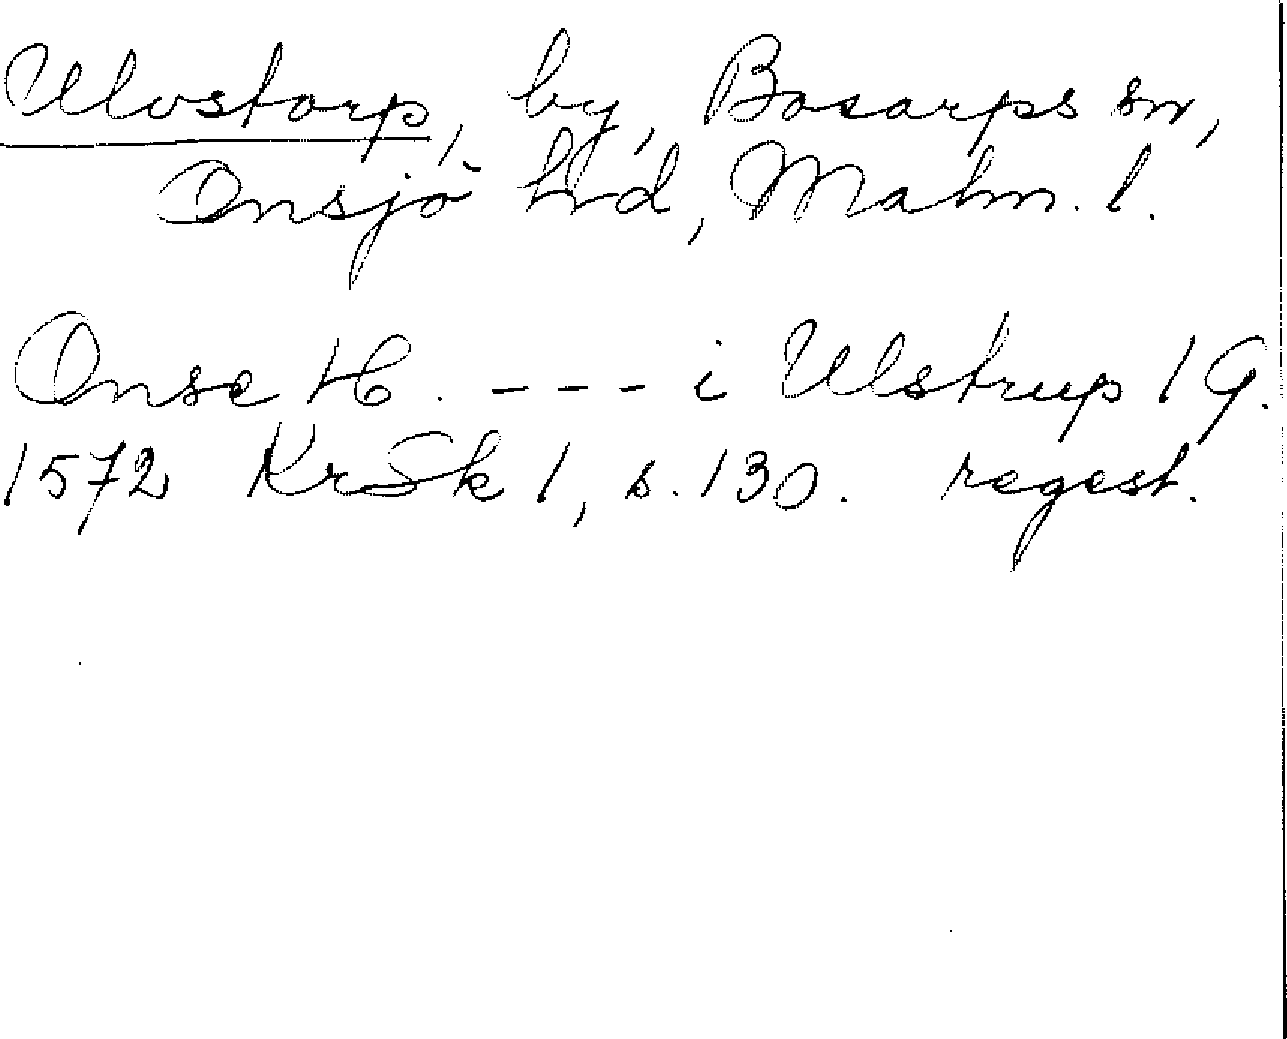 Ulvstorp, by, Bosarps sn,
Onsjö hd, Malm. l.
Onse H. - - - i Ulstrup 1 G.
1572 KrSk 1, s. 130. regest.